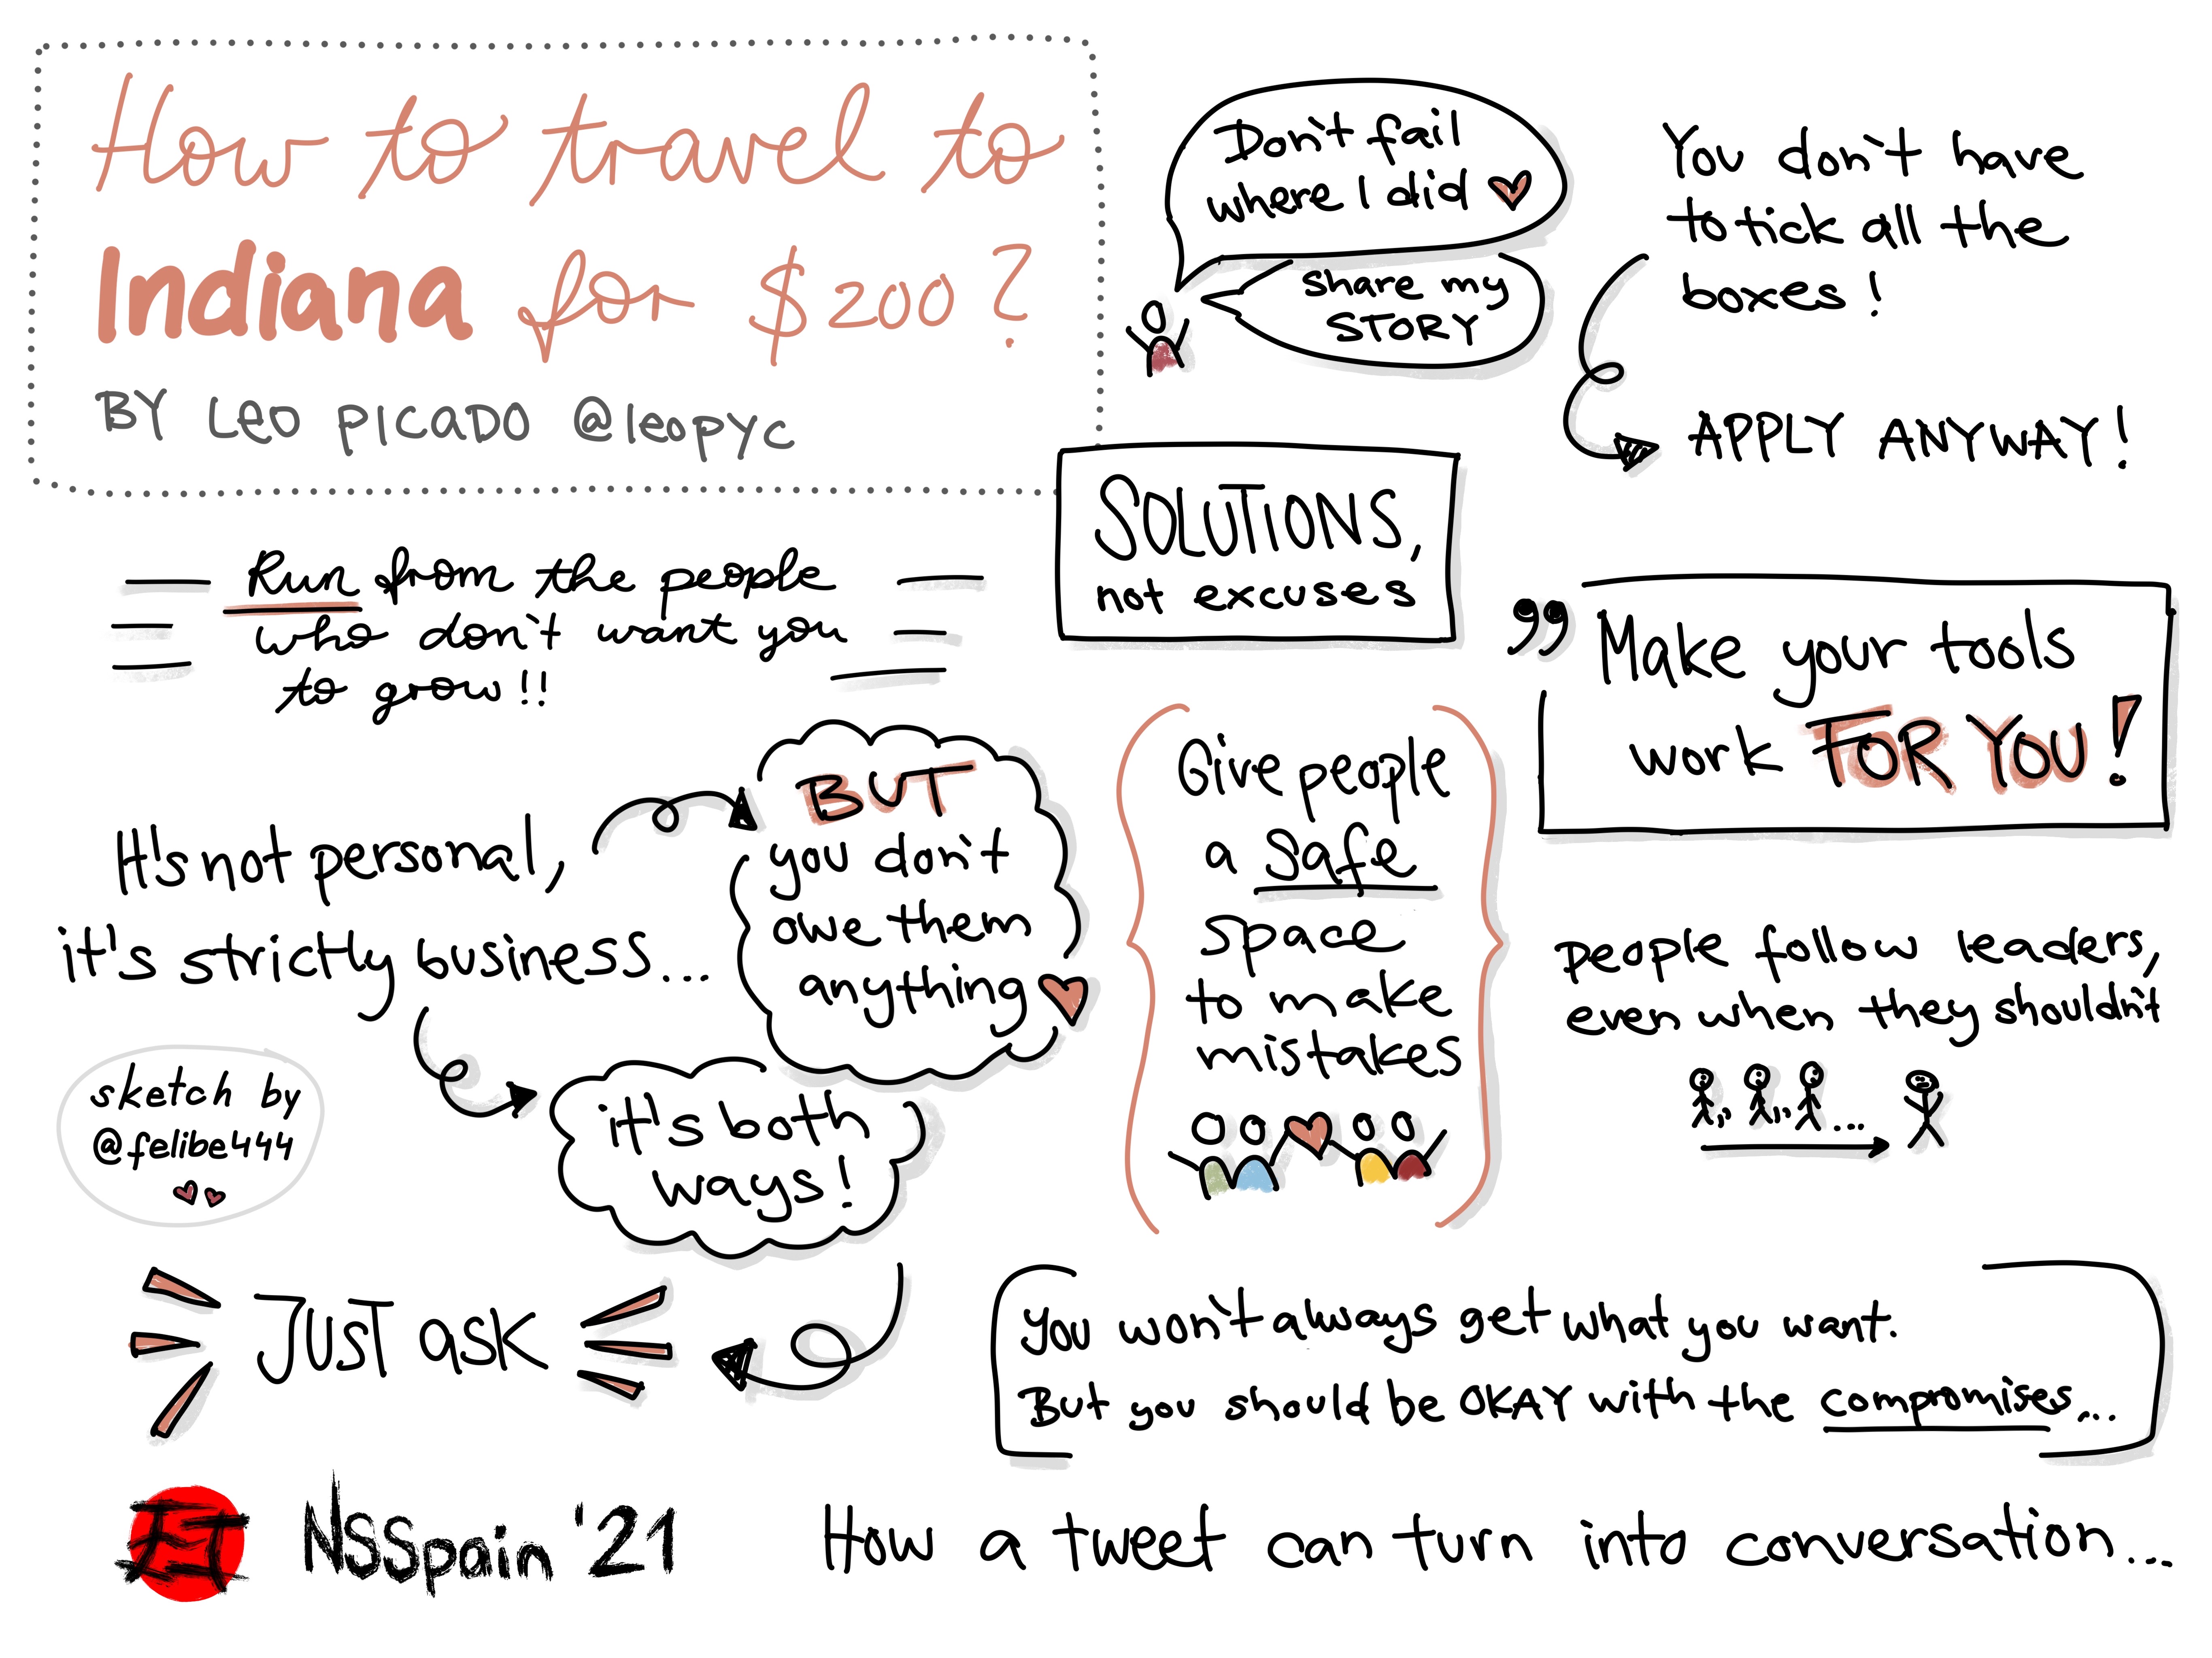 How to travel to
Indiana for $200?
BY LEO PICADO @leopyc
Don't fail
where I did
share my
STORY
You don't have
to tick all the
boxes!
APPLY ANYWAY!
SOLUTIONS,
not excuses
Run from the people
who don't want you
to grow!!
" Make your tools
work FOR YOU!
It's not personal,
it's strictly business...
BUT
you don't
owe them
anything
it's both
ways!
Give people
a safe
space
to make
mistakes
people follow leaders,
even when they shouldn't
...
sketch by
@felibe444
JUST ask
you won't always get what you want.
But you should be OKAY with the compromises...
NSSpain '21
How a tweet can turn into conversation...